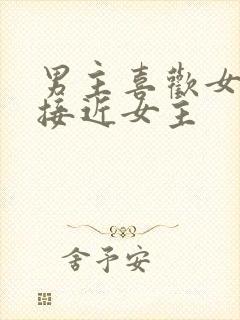 男主喜歡女
接近女主
舍予安